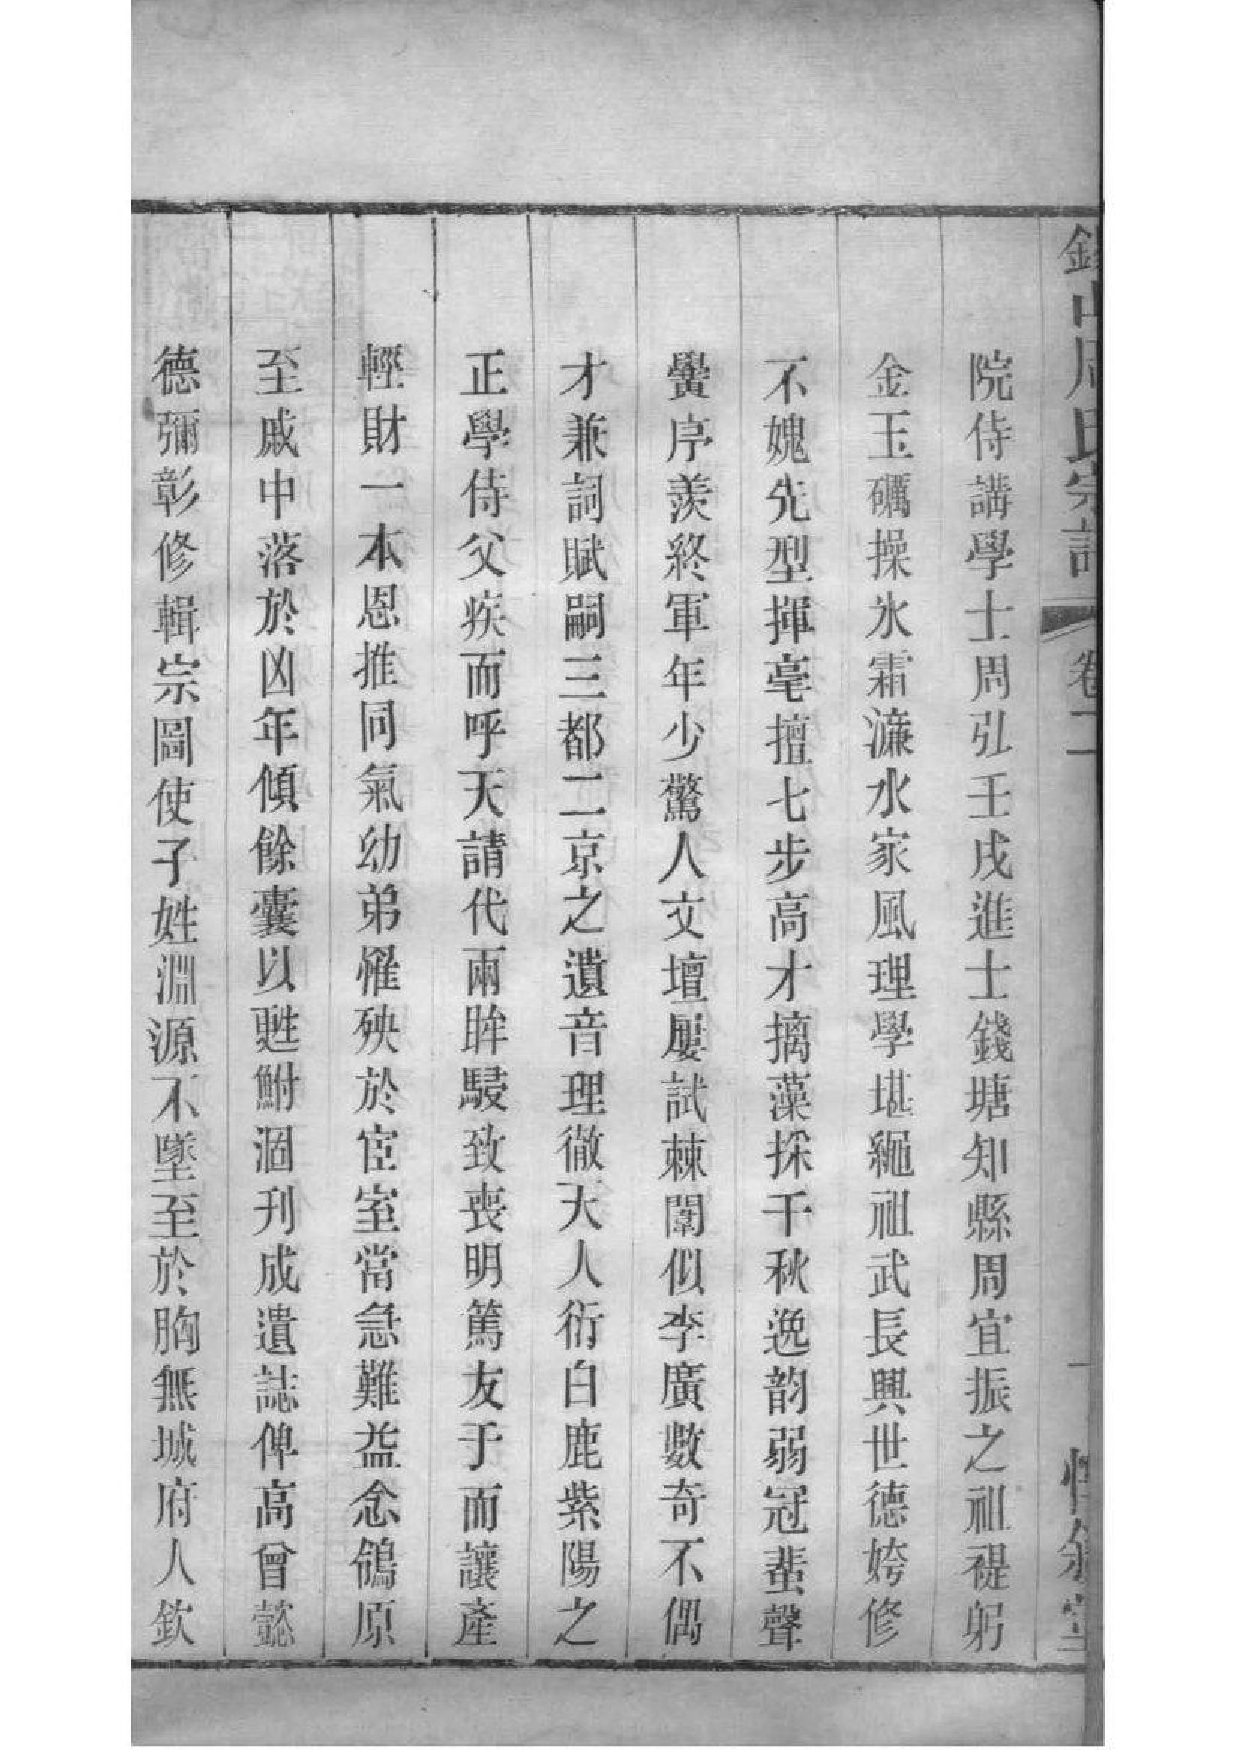 錫山周氏宗譜 卷二 一 惇敘堂
院侍講學士周弘壬戌進士錢塘知縣周宜振之祖禔躬
金玉礪操氷霜濂水家風理學堪繩祖武長興世德姱修
不媿先型揮毫擅七步高才摛藻採千秋逸韵弱冠蜚聲
黌序羨終軍年少驚人文壇屢試棘闈似李廣數奇不偶
才兼詞賦嗣三都二京之遺音理徹天人衍白鹿紫陽之
正學侍父疾而呼天請代兩眸駸致喪明篤友于而讓產
輕財一本恩推同氣幼弟罹殃於宦室當急難益念鴒原
至戚中落於凶年傾餘囊以甦鮒涸刋成遺誌俾高曾懿
德彌彰修輯宗圖使子姓淵源不墜至於胸無城府人欽